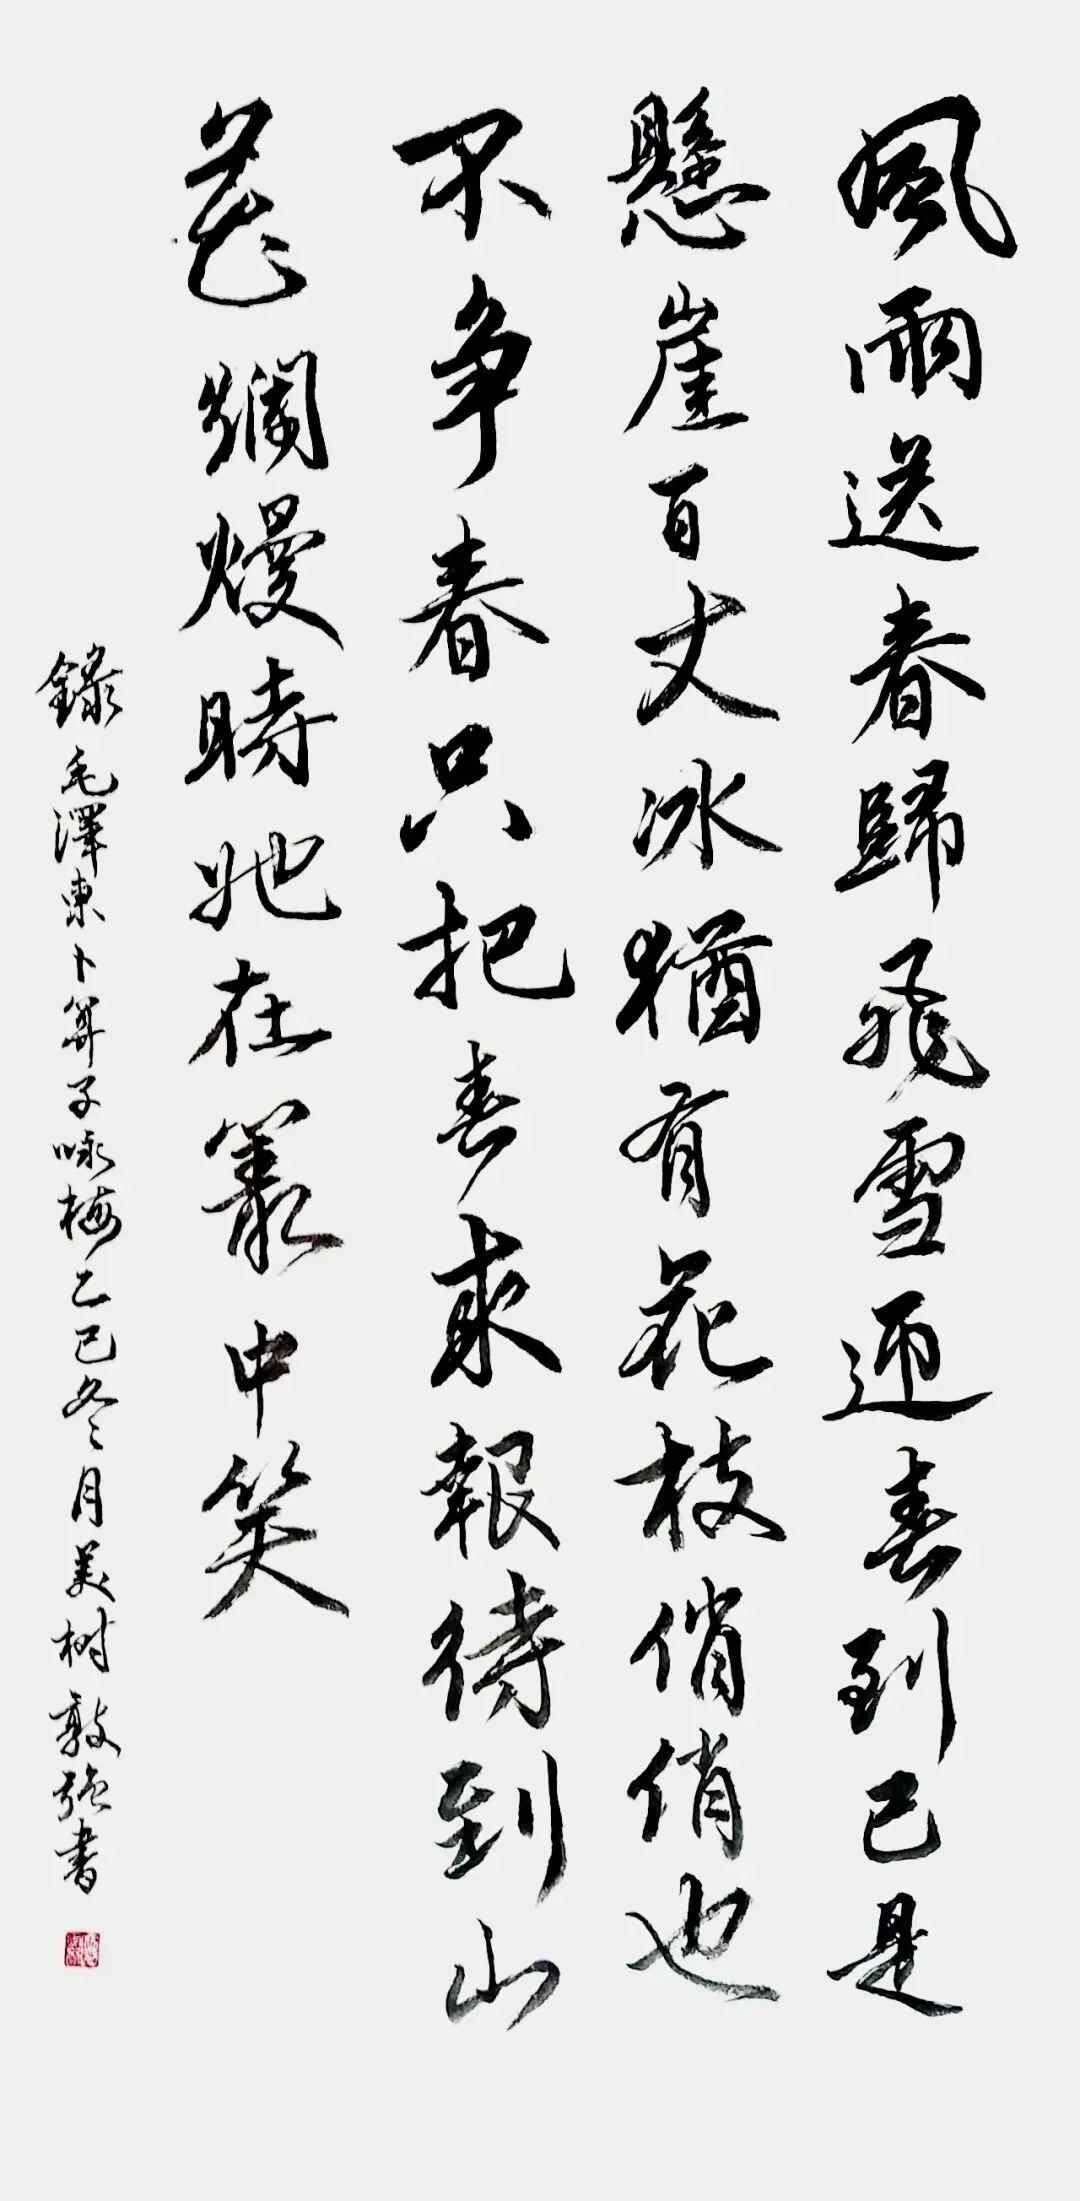 風雨送春歸飛雪迎春到已是
懸崖百丈冰猶有花枝俏俏也
不争春只把春來報待到山
花爛熳時她在叢中笑
錄毛澤東卜算子咏梅乙巳冬月美树敦強書